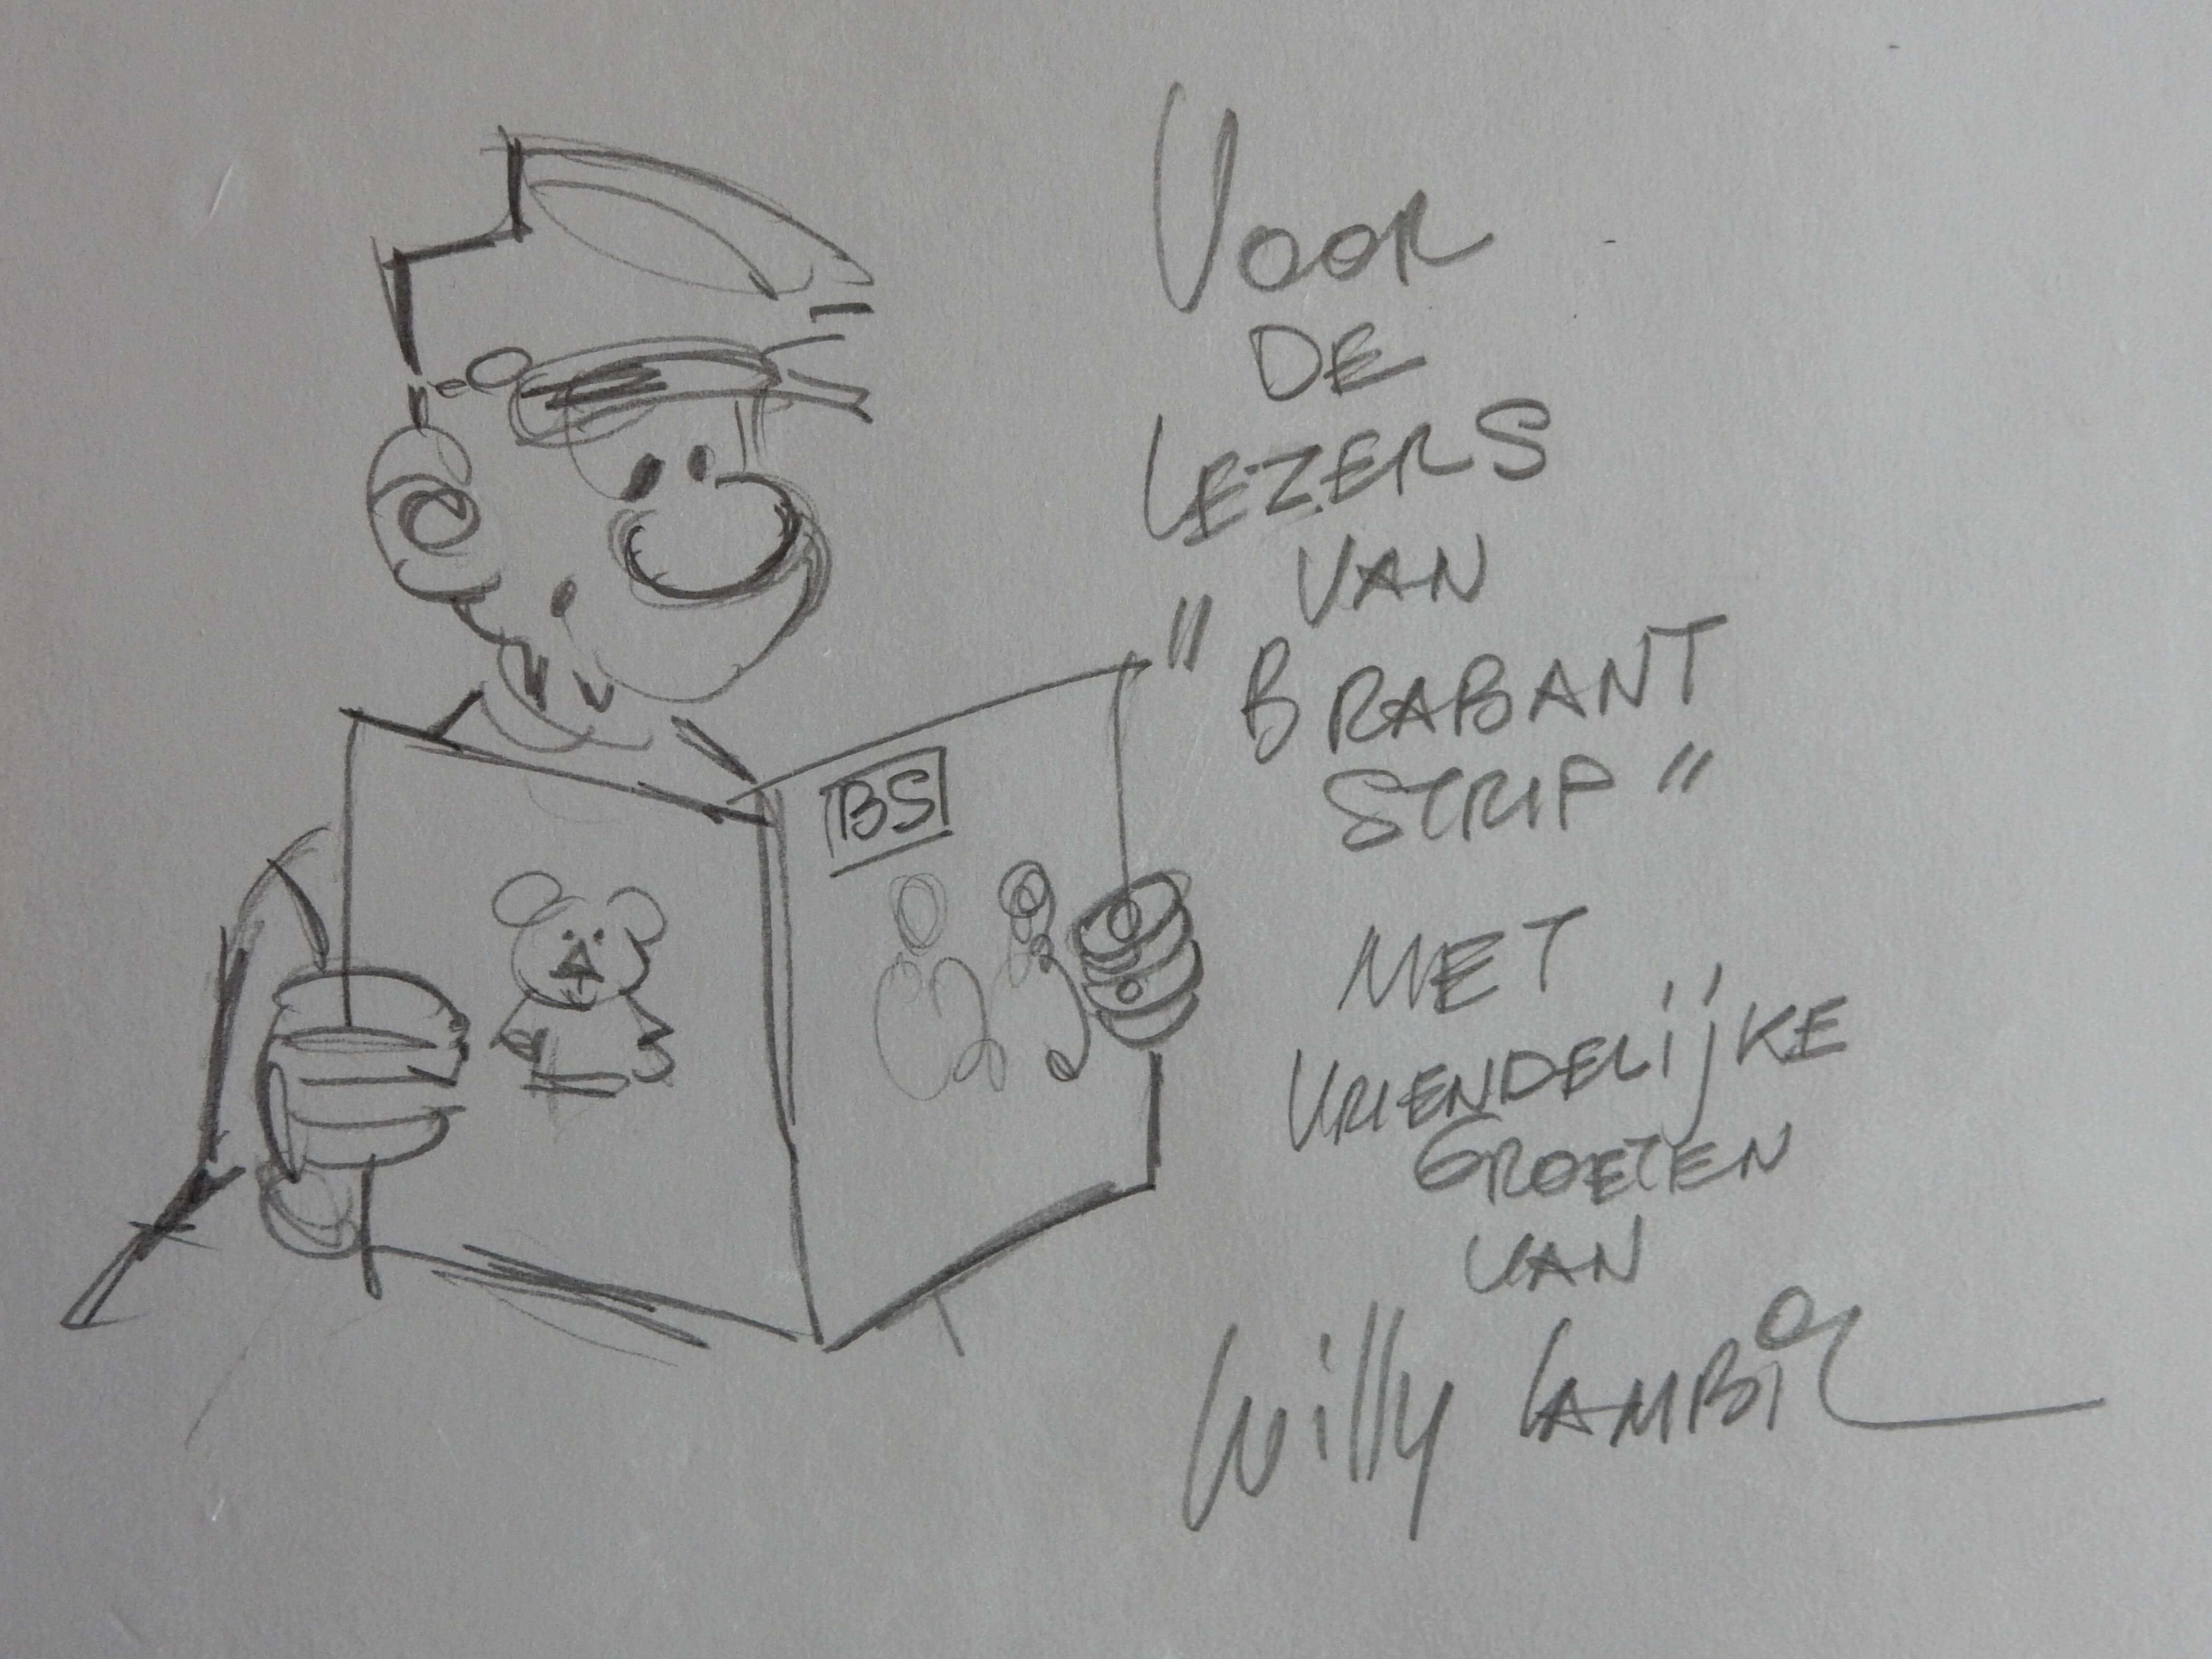 BS
VOOR
DE
LEZERS
VAN
"BRABANT
STRIP"
MET
VRIENDELIJKE
GROETEN
VAN
Willy LAMBIL